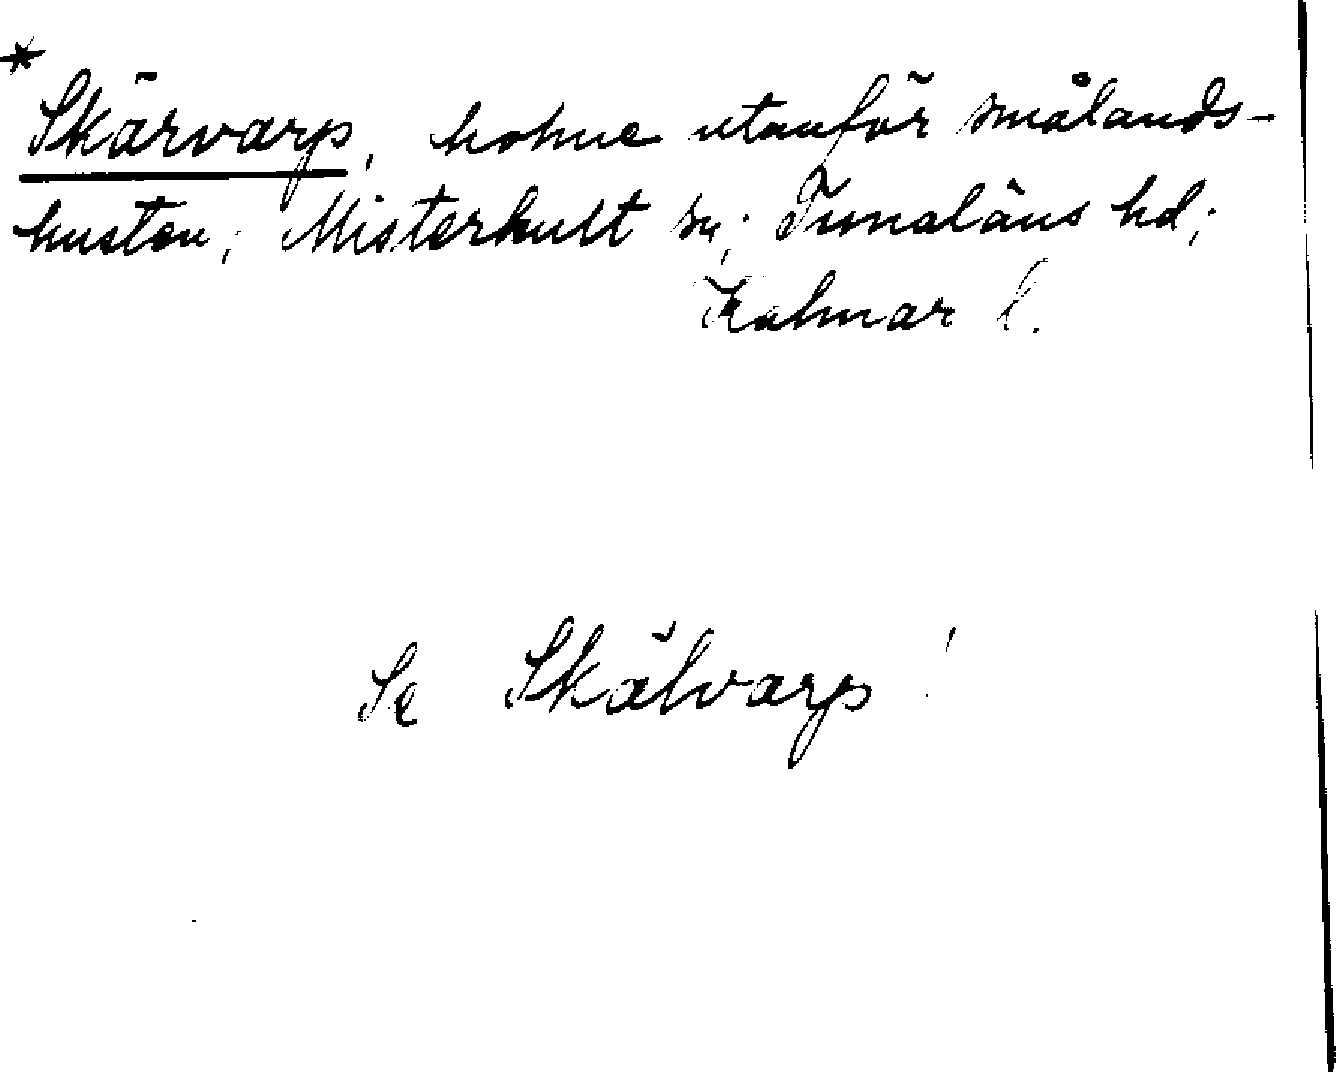 * Skärvarp, holme utanför smålands-
kusten; Misterhult sn; Tunaläns hd;
Kalmar l.
Se Skälvarp!